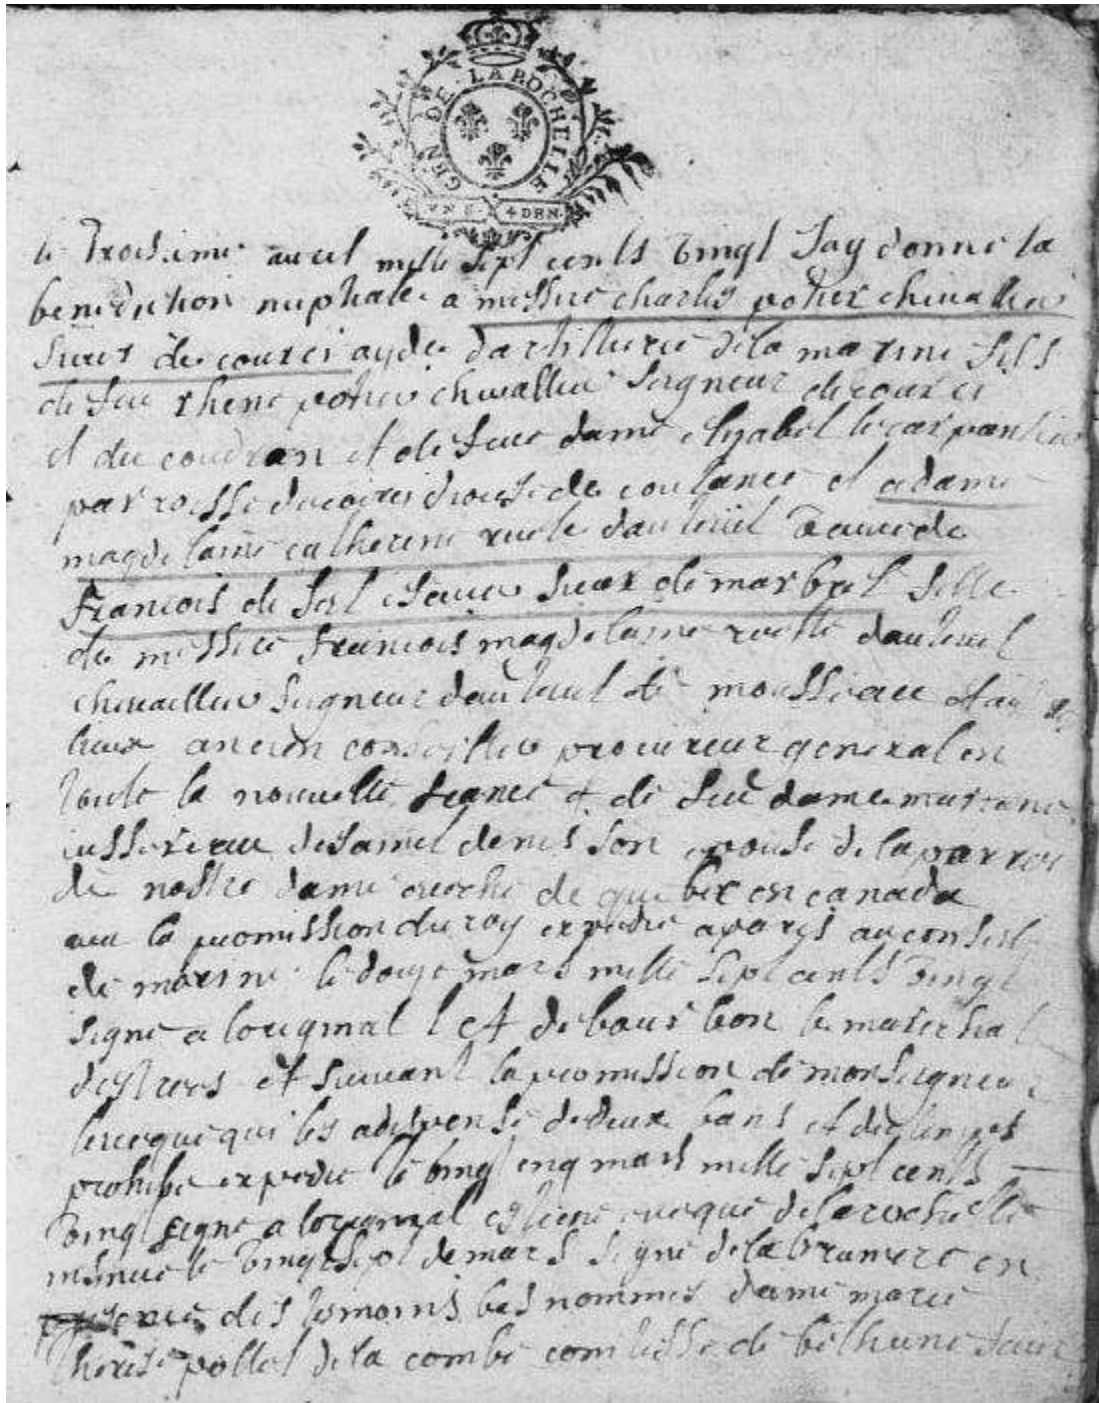 GEN DE LA ROCHELLE
4 DEN
le Troisieme avril mille sept cents vingt Jay donné la
benediction nuptiale a messire charles potier chevallier
sieur de courci ayde dartillerie de la marine fils
de feu rhené potier chevallier seigneur de courci
et du coudran et de feue dame elyabel le carpantier
parroisse de diocese de coutance et a dame
magdelaine catherine ruette dauteüil veauve de
françois de sieur de marbrel fille
de messire francois magdelaine ruette dauteuil
chevallier seigneur dauteuil de mousseau et autres
lieux ancien conseillier procureur general en
toute la nouvelle france et de feue dame marianne
jussereau desaint denis son epouse de la parroi
de nostre dame eveché de quebec en canada
veu la promission du roy expedié a paris au conseil
de marine le douze mars mille sept cents vingt
signé a loriginal l et de bourbon le marechal
destrees et suivant la promission de monseigneur
leveque qui les a dispensé de deux bans et de temps
prohibé expedié le vingt cinq mars mille sept cents
vingt signé a loriginal estiene eveque de la rochelle
insinué le vingt sept de mars signé de la brunere en
presence des temoins bas nommes dame marie
therese pollet de la combe comtesse de bethune